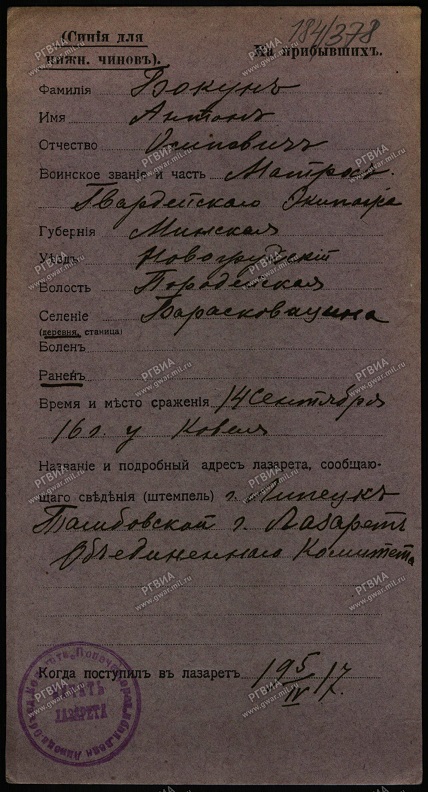 184/378
(Синія для
нижн. чиновъ).
На прибывшихъ.
Фамилія Бокунъ
Имя Антонъ
Отчество Осиповичъ
Воинское званіе и часть Матросъ
Гвардейскаго Экипажа
Губернія Минская
Уѣздъ Новогрудскій
Волость Городейская
Селеніе
(деревня, станица)
Болѣнъ
Раненъ
Время и мѣсто сраженія 14 Сентября
16 г. у Ковеля
Названіе и подробный адресъ лазарета, сообщаю-
щаго свѣдѣнія (штемпель) г. Липецкъ
Тамбовской г. Лазаретъ
Объединеннаго Комитета
Когда поступилъ въ лазаретъ 19 5/IV 17.
ПЕЧАТЬ
ЛАЗАРЕТА
РГВИА
www.gwar.mil.ru